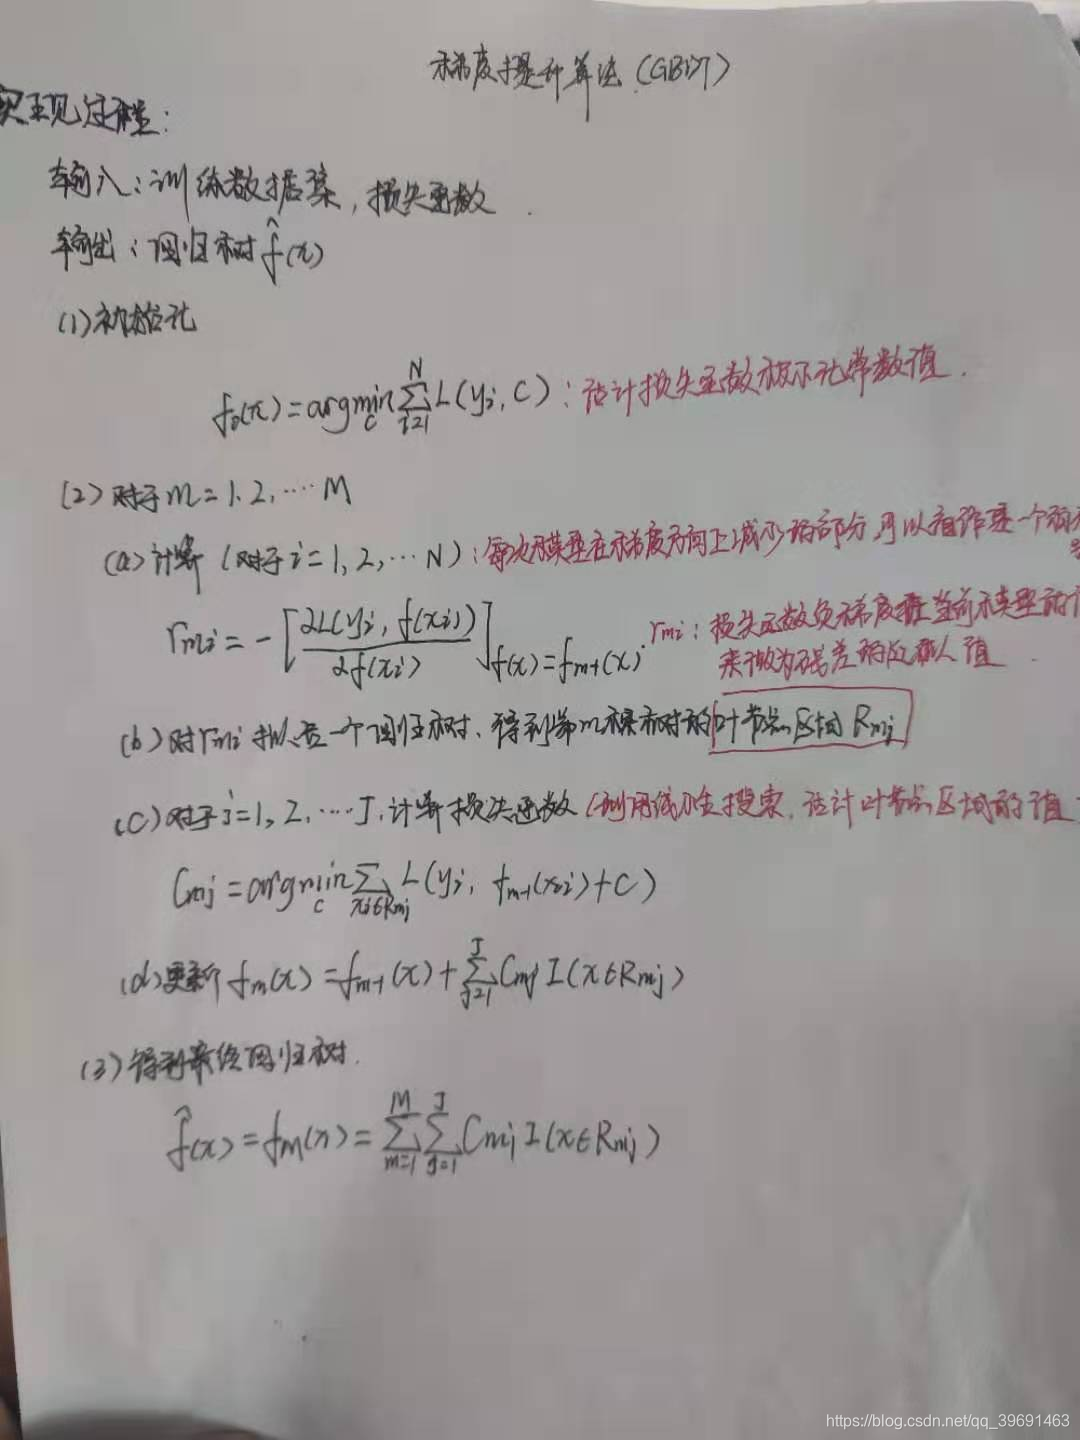 梯度提升算法(GBDT)
实现过程:
输入:训练数据集,损失函数.
输出:回归树 f̂(x)
(1)初始化
f₀(x)=argmin_c Σ_{i=1}^{N} L(yᵢ, C):估计损失函数极小化常数值.
(2)对于m=1,2,…M
(a)计算(对于i=1,2,…N):每次模型在梯度方向上减少的部分,可以看作是一个
r_{mi}=-[∂L(yᵢ, f(xᵢ))/∂f(xᵢ)]_{f(x)=f_{m-1}(x)}. r_{mi}:损失函数负梯度在当前模型的
来做为残差的近似值.
(b)对r_{mi}拟合一个回归树,得到第m棵树的叶节点区域R_{mj}
(c)对于j=1,2,…J,计算损失函数(利用线性搜索,估计叶节点区域的值
C_{mj}=argmin_c Σ_{xᵢ∈R_{mj}} L(yᵢ, f_{m-1}(xᵢ)+C)
(d)更新 f_m(x)=f_{m-1}(x)+Σ_{j=1}^{J} C_{mj} I(x∈R_{mj})
(3)得到最终回归树.
f̂(x)=f_M(x)=Σ_{m=1}^{M} Σ_{j=1}^{J} C_{mj} I(x∈R_{mj})
https://blog.csdn.net/qq_39691463